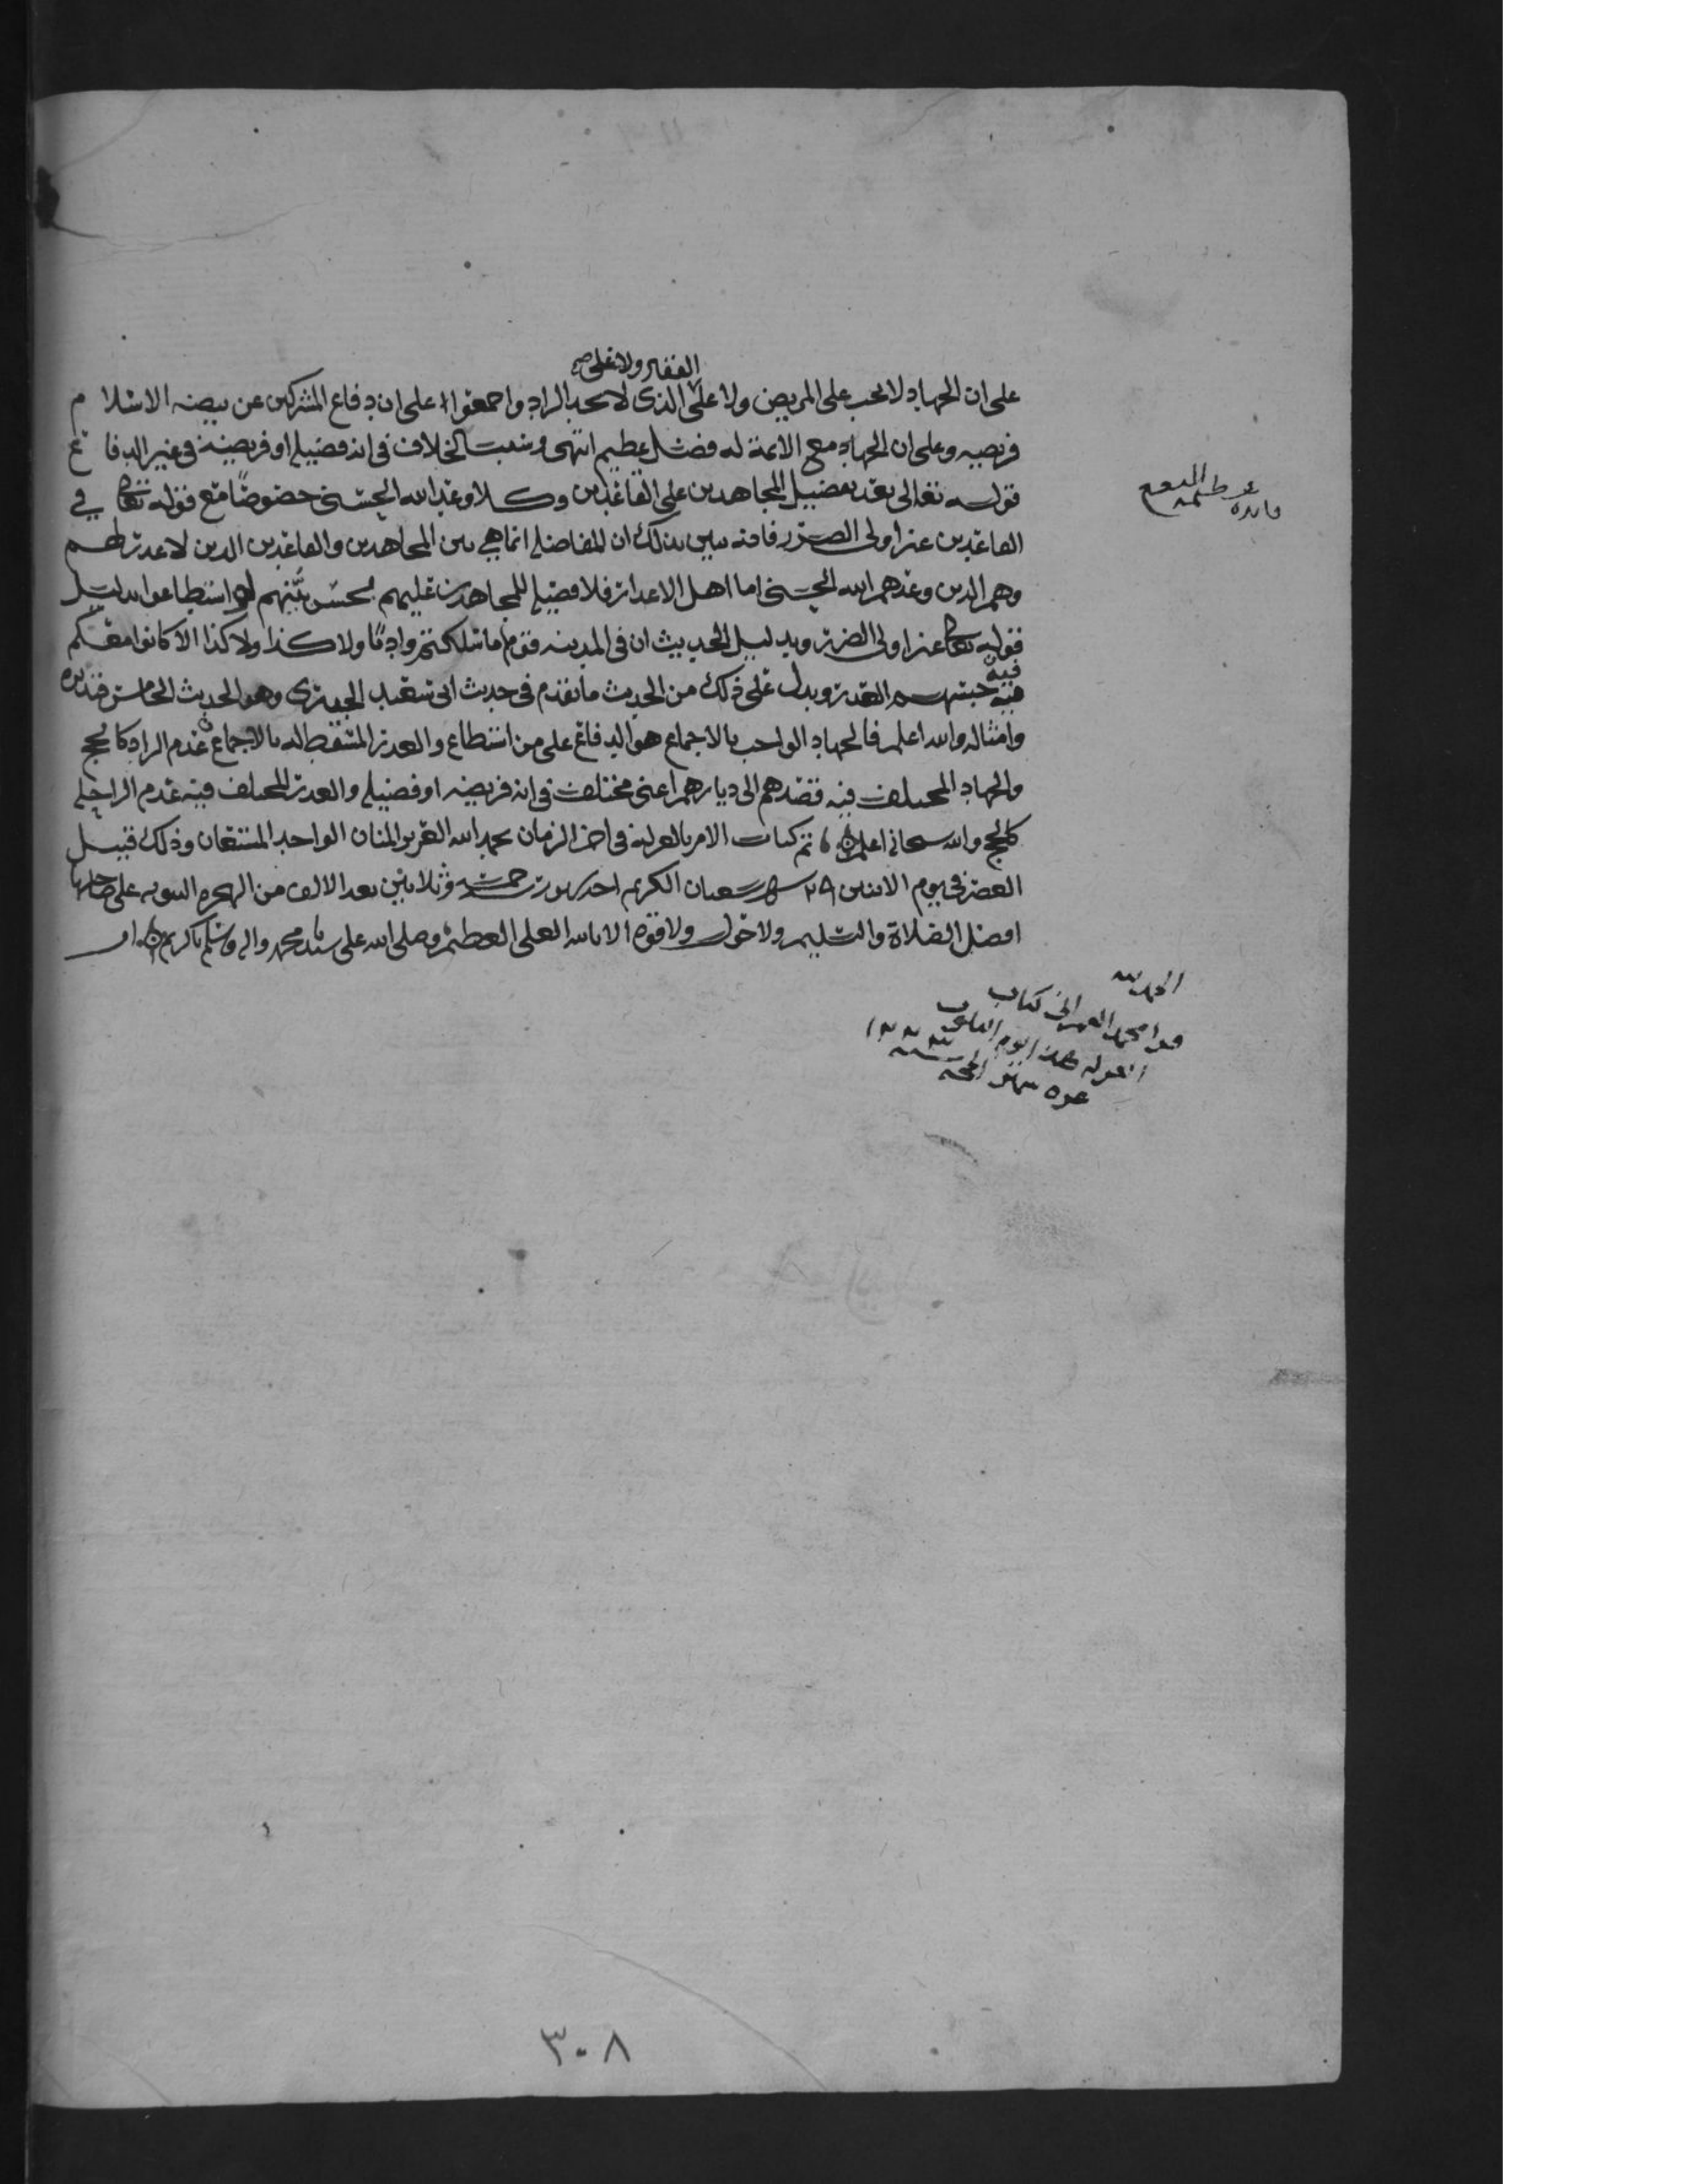 الفقير ولا على
على ان الجهاد لا يجب على المريض ولا على الذي لا يجد الزاد واجمعوا على ان دفاع المشركين عن بيضة الاسلام
فريضه وعلى ان الجهاد مع الائمة له فضل عظيم انتهى وسبب الخلاف في انه فضيله او فريضة في غير الدفاع
قوله تعالى بعد تفضيل المجاهدين على القاعدين وكلا وعد الله الحسنى خصوصا مع قوله تعالى في
فايده عظيمه النفع
القاعدين غير اولى الضرر فانه يبين بذلك ان المفاضله انما هي بين المجاهدين والقاعدين الذين لا عذر لهم
وهم الذين وعدهم الله الحسنى اما اهل الاعذار فلا فضيله للمجاهدين عليهم بحسن نيتهم لو استطاعوا بدليل
قوله تعالى غير اولى الضرر وبدليل الحديث ان في المدينه قوم ما سلكتم واديا ولا كذا ولا كذا الا كانوا معكم
فيه حبسهم العذر ويدل على ذلك من الحديث ما تقدم في حديث ابي سعيد الجعفري وهو الحديث الخامس فتدبره
وامثاله والله اعلم فالجهاد الواجب بالاجماع هو الدفاع على من استطاع والعذر المسقط له بالاجماع عدم الزاد كالحج
والجهاد المختلف فيه قصدهم الى ديارهم اعني مختلف في انه فريضه او فضيله والعذر المختلف فيه عدم الراحله
كالحج والله سبحانه اعلم تم كتاب الامر بالعزلة في اخر الزمان بحمد الله العزيز المنان الواحد المستعان وذلك قبيل
العصر في يوم الاثنين ٢٩ شهر شعبان الكريم احد شهور خمسه وثلاثين بعد الالف من الهجره النبويه على صاحبها
افضل الصلاة والتسليم ولا حول ولا قوه الا بالله العلي العظيم وصلى الله على سيدنا محمد واله وسلم
الحمد لله
كتاب
العزله
غره شهر الحجه
٣٠٨